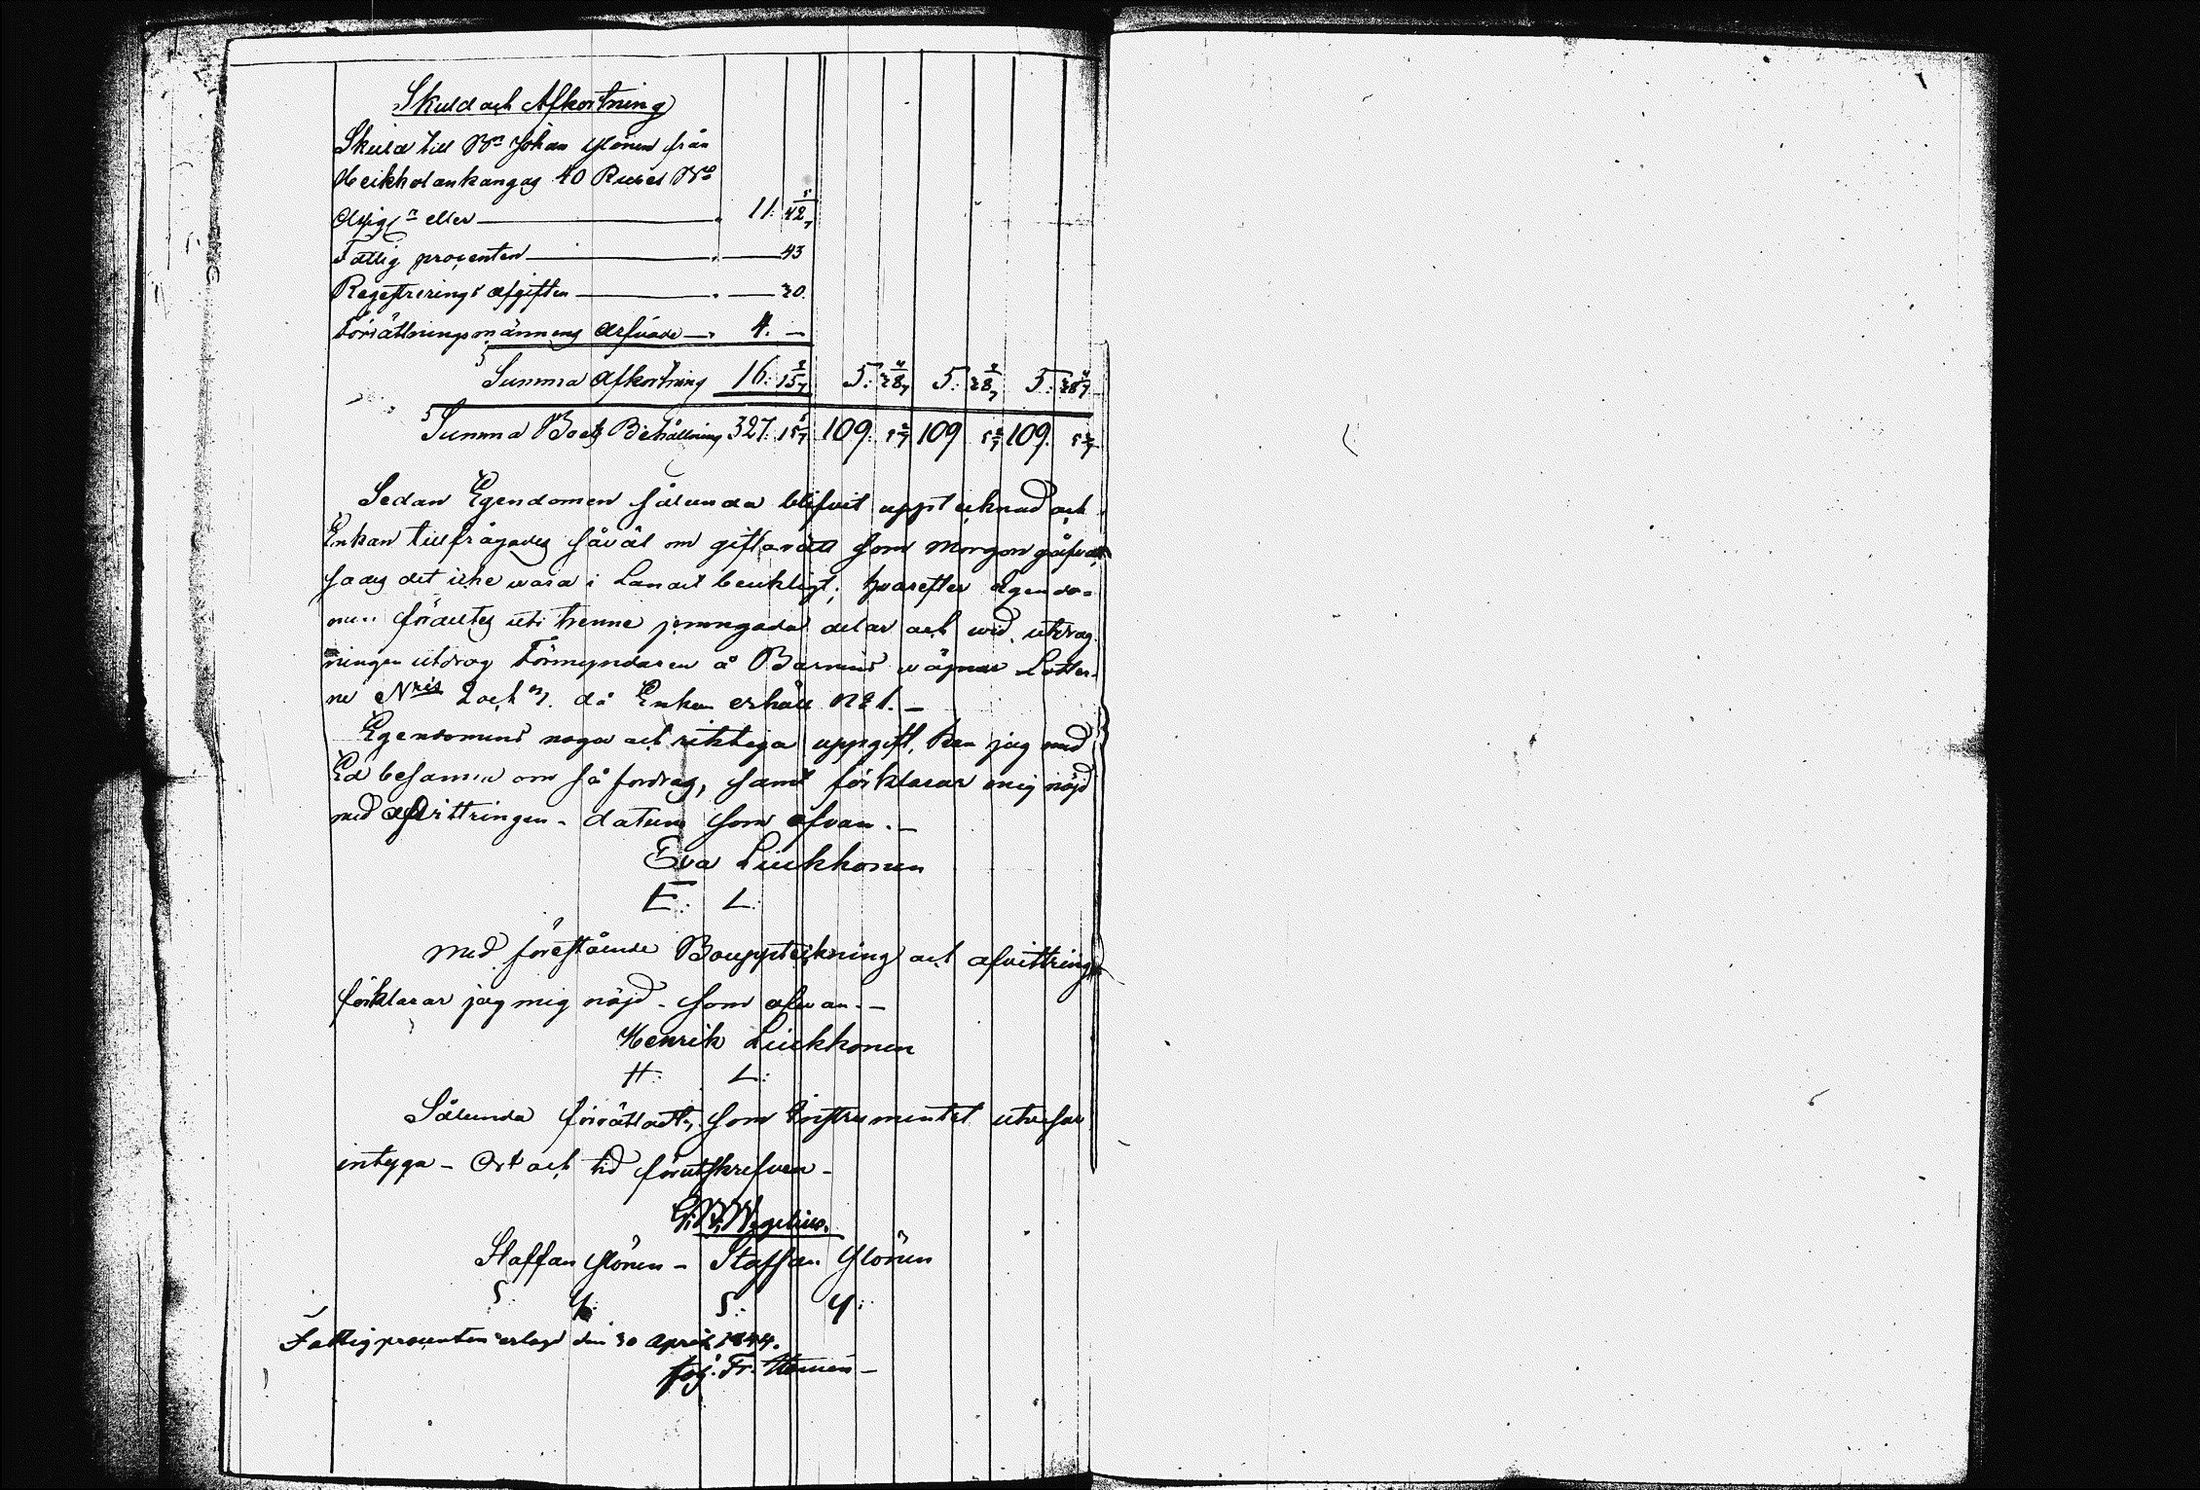 Skuld och Afkortning
Skuld till Bn Johan Ylönen från
Heikholankangas 40 Rubel Bco
Assign eller 11. 42 5/7
Fattig procenten 43
Regestrerings afgiften 20.
Förrättningsmännens Arfvode 4. —
Summa Afkortning 16. 15 5/7 5. 28 4/7 5. 28 4/7 5. 28 4/7
Summa Boets Behållning 327. 15 5/7 109. 5 2/7 109 5 2/7 109. 5 2/7
Sedan Egendomen sålunda blifvit upptecknad och
Enkan tillfrågades såväl om giftorätt som morgongåfva,
sades det icke wara i Landet brukligt; hvarefter Egendo-
men fördeltes uti trenne jemngoda delar och wid utdrag-
ningen utdrog Förmyndaren å Barnens wägnar Lotter-
ne Nris 2 och 3. då Enkan erhöll No 1. —
Egendomens noga och riktiga uppgift, kan jag med
Ed besanna om så fordras, samt förklarar mig nöjd
med afvittringen - datum som ofvan. —
Eva Liukkonen
E: L:
Med förestående Bouppteckning och afvittring
förklarar jag mig nöjd - som ofvan. —
Henrik Liukkonen
H: L:
Sålunda förrättadt, som Instrumentet utvisar
intyga - Ort och tid förutskrefven -
Wegelius.
Staffan Ylönen - Staffan Ylönen
S: Y: S: Y:
Fattigprocenten erlagd den 30 April 1844.
Fr.